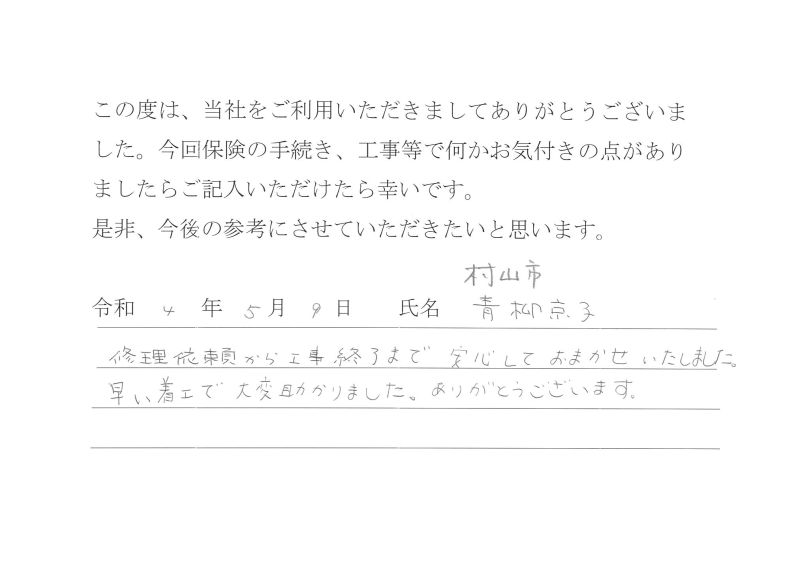 この度は、当社をご利用いただきましてありがとうございま
した。今回保険の手続き、工事等で何かお気付きの点があり
ましたらご記入いただけたら幸いです。
是非、今後の参考にさせていただきたいと思います。
村山市
令和 4 年 5 月 9 日 氏名 青柳京子
修理依頼から工事終了まで 安心して おまかせ いたしました。
早い着工で 大変助かりました。ありがとうございます。